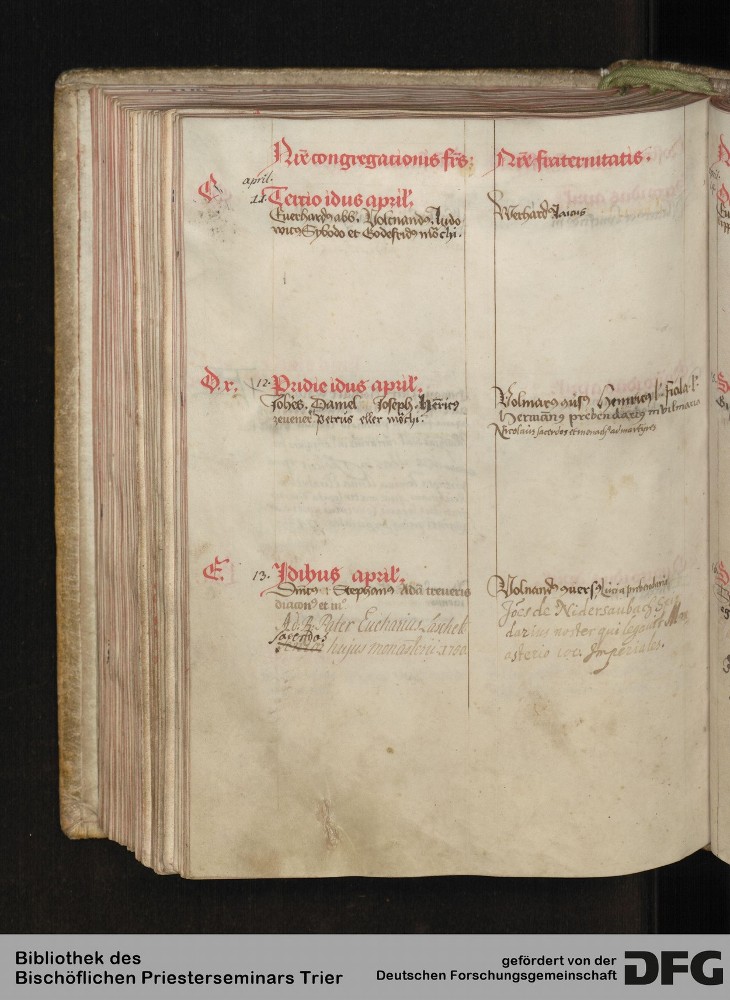 Nr̄e congregationis fr̄s:
Nr̄e fraternitatis.
april.
C
11.
Tercio idus april.
Euerhardꝰ abb. Volcnandꝰ. Ludo
wicꝰ Sybodo et Godefridꝰ mōchi.
Werhardꝰ laicus
D. v.
12.
Pridie idus april.
Joh̄es. Daniel Joseph. Henricꝰ
zeuener Petrus eller mōchi.
Volmarꝰ Henricus
Hermānꝰ prebendariꝰ in vilmaria
Nicolaus sacerdos et monachꝰ ad martyres
E.
13.
Idibus april.
Stephanꝰ Adā treueris
diaconꝰ et
Ad. R. Pater Eucharius Laschek
Sacerdos
hujus monasterii 1760
Volnandꝰ Lucia prebendaria
Joēs de Nidersaubach
darius noster qui legavit Mon
asterio Imperiales.
Bibliothek des
Bischöflichen Priesterseminars Trier
gefördert von der
Deutschen Forschungsgemeinschaft
DFG